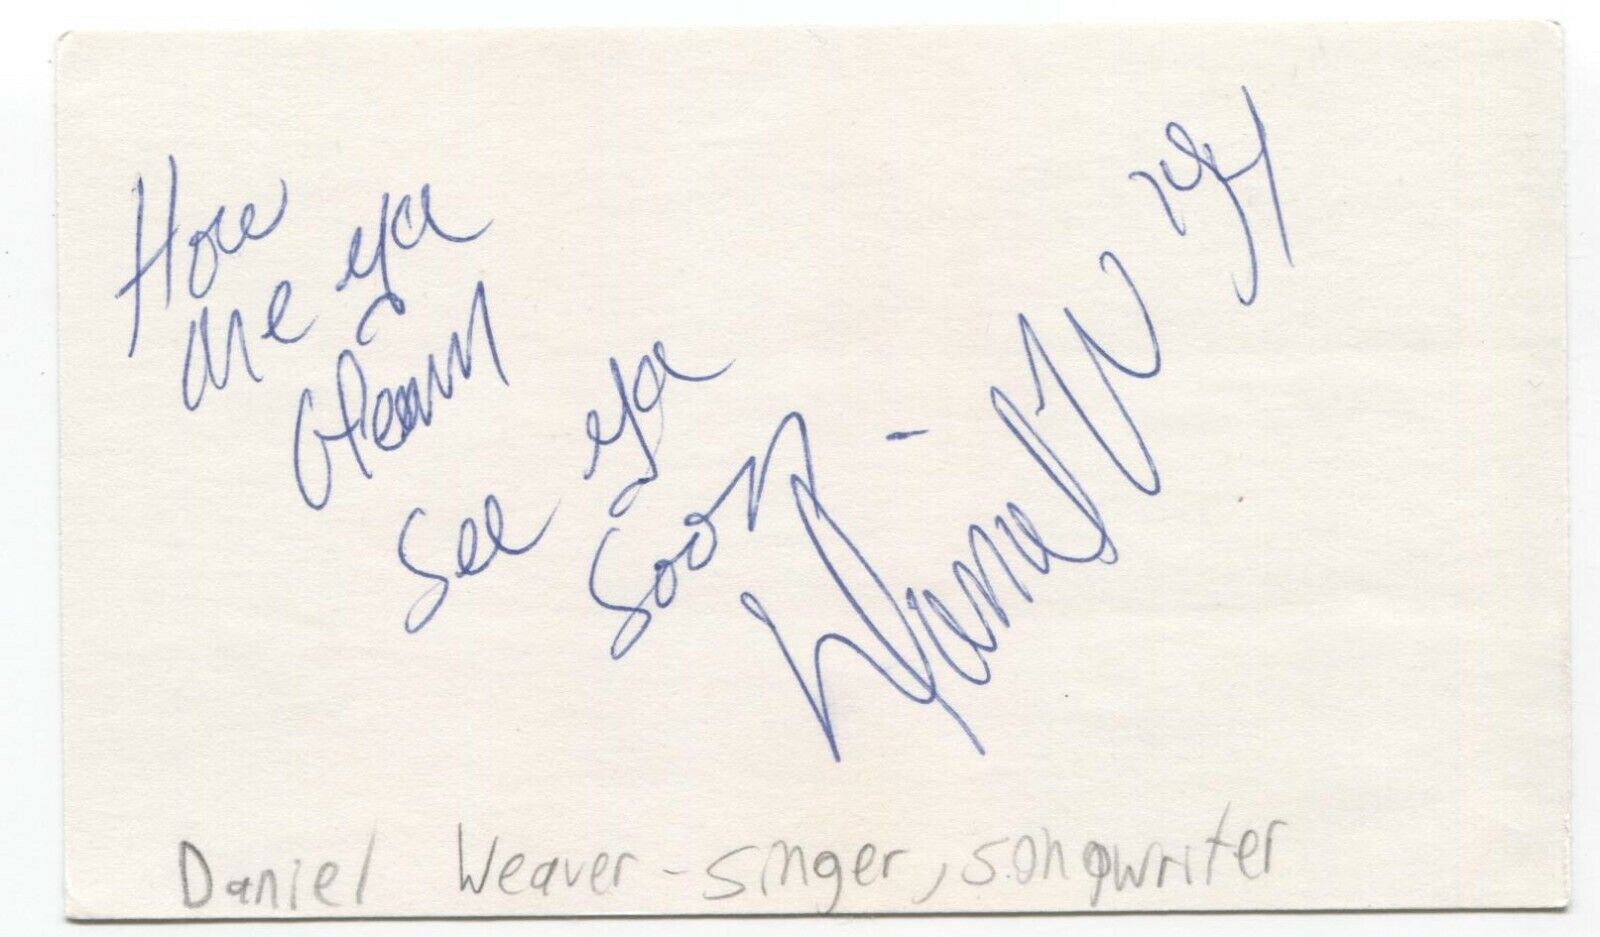 How
are ya
Glenn
See ya
Soon -
Daniel W '94
Daniel Weaver - singer, songwriter